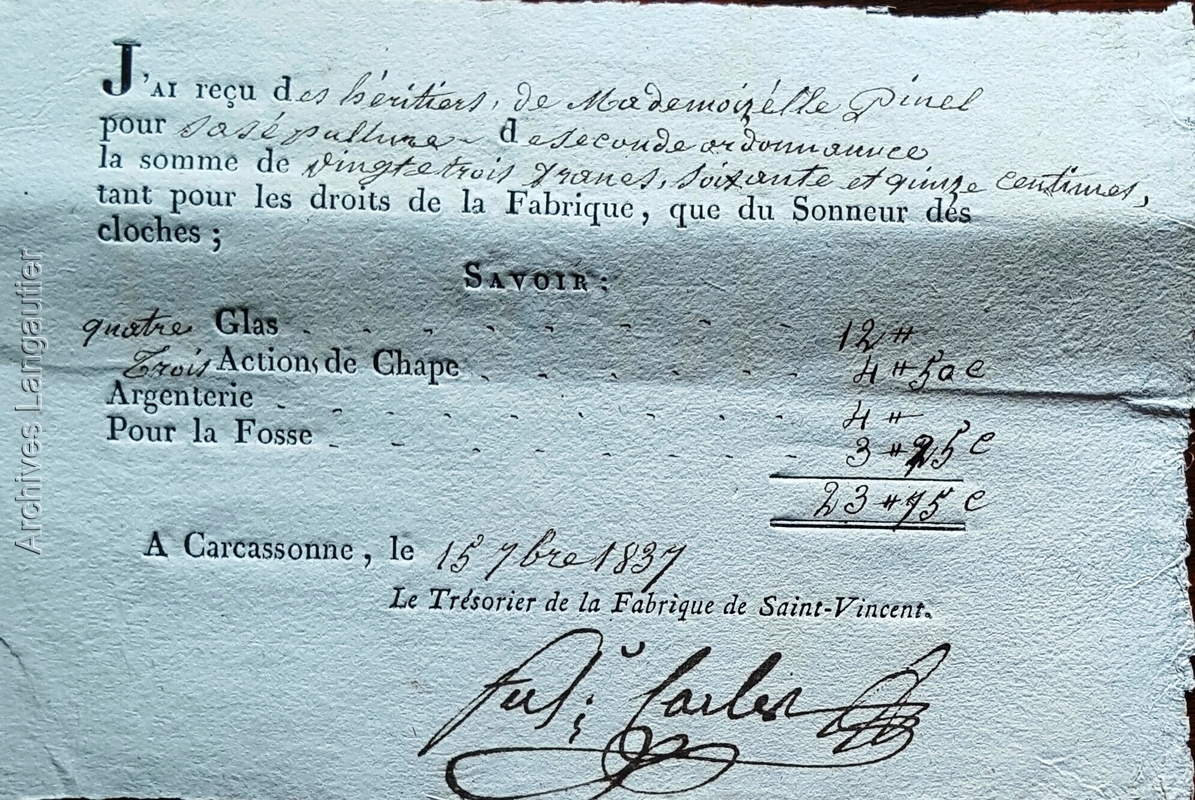 J'AI reçu des héritiers, de Mademoizélle Pinel
pour sa sépulture de seconde ordonnance
la somme de vingt et trois francs, soixante et quinze centimes,
tant pour les droits de la Fabrique, que du Sonneur des
cloches ;
SAVOIR :
quatre Glas - - - - - - - - - 12 #
Trois Actions de Chape - - - - - - 4 # 50 c
Argenterie - - - - - - - - - 4 #
Pour la Fosse - - - - - - - - 3 # 25 c
23 # 75 c
A Carcassonne, le 15 7bre 1837
Le Trésorier de la Fabrique de Saint-Vincent.
Carles
Archives Langautier